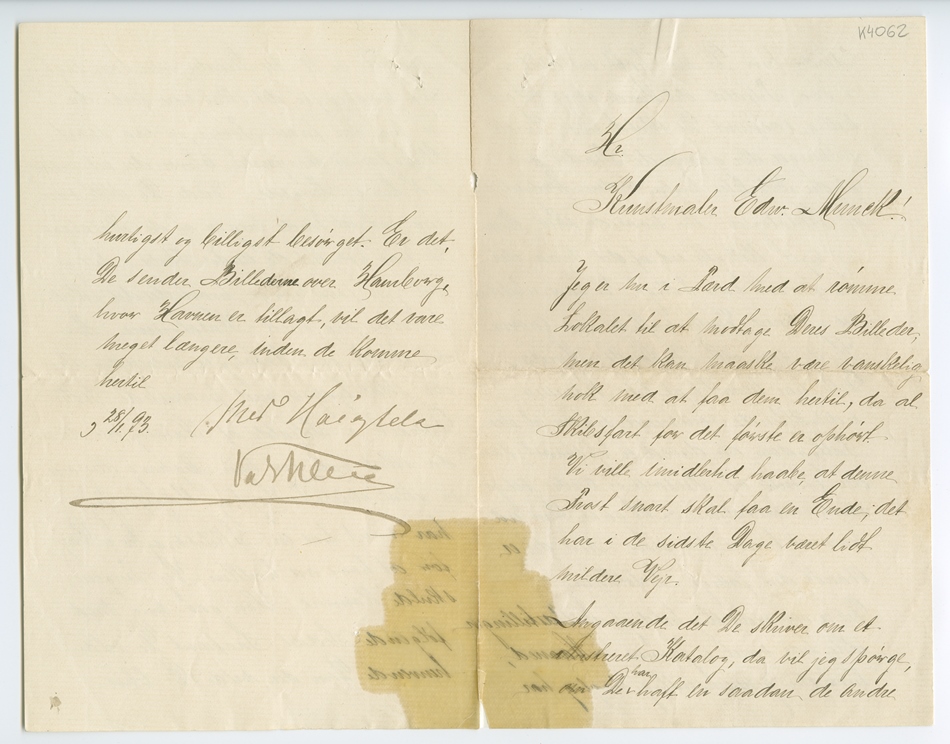 K4062
Hr
Kunstmaler Edw. Munck!
Jeg er nu i Færd med at rømme
Lokalet til at modtage Deres Billeder,
men det kan maaske være vanskelig
nok med at faa dem hertil, da al
Skibsfart for det første er ophørt.
Vi ville imidlertid haabe, at denne
Frost snart skal faa en Ende; det
har i de sidste Dage været lidt
mildere Vejr.
Angaaende det De skriver om et
illustreret Katalog, da vil jeg spørge,
om De har haft en saadan de andre
hurtigst og billigst besørget. Er det,
De sender Billederne over Hamborg,
hvor Havnen er tillagt, vil det vare
meget længere, inden de komme
hertil
28/1 93. Med Høiagtelse